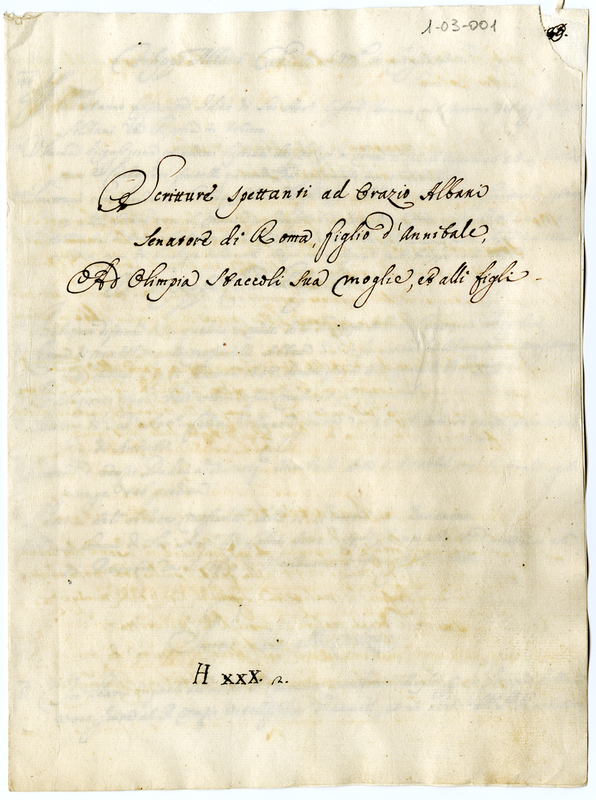 1-03-001
Scritture spettanti ad Orazio Albani
Senatore di Roma, figlio d'Annibale,
Ad Olimpia Staccoli sua moglie, et alli figli
H XXX. 2.